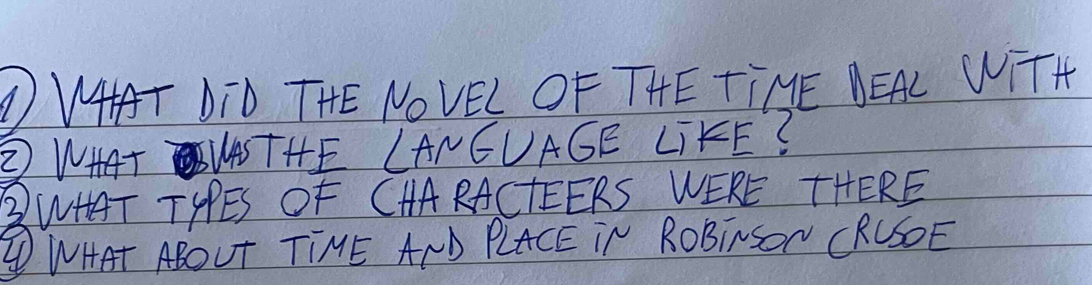 1) WHAT DID THE NOVEL OF THE TIME DEAL WITH
2) WHAT WAS THE LANGUAGE LIKE?
3) WHAT TYPES OF CHARACTEERS WERE THERE
4) WHAT ABOUT TIME AND PLACE IN ROBINSON CRUSOE